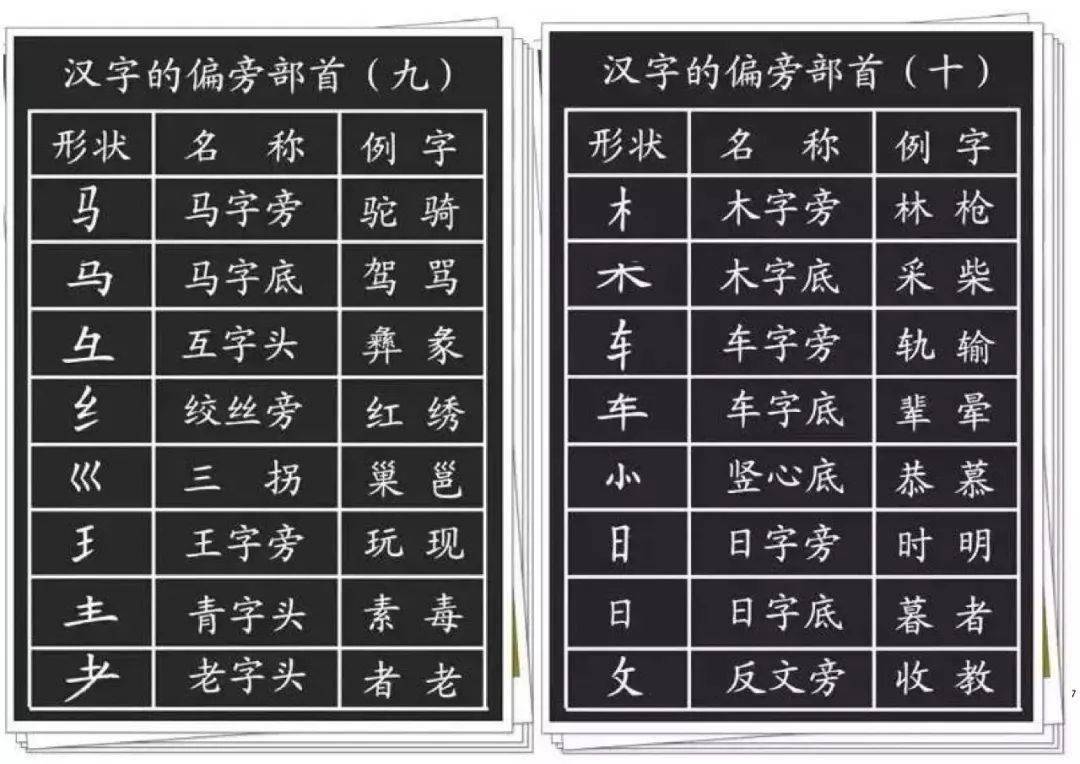 汉字的偏旁部首（九）
形状 名 称 例 字
马 马字旁 驼 骑
马 马字底 驾 骂
彑 互字头 彝 彖
纟 绞丝旁 红 绣
巛 三 拐 巢 邕
王 王字旁 玩 现
龶 青字头 素 毒
耂 老字头 者 老
汉字的偏旁部首（十）
形状 名 称 例 字
木 木字旁 林 枪
木 木字底 采 柴
车 车字旁 轨 输
车 车字底 辈 晕
⺗ 竖心底 恭 慕
日 日字旁 时 明
日 日字底 暮 者
攵 反文旁 收 教
7